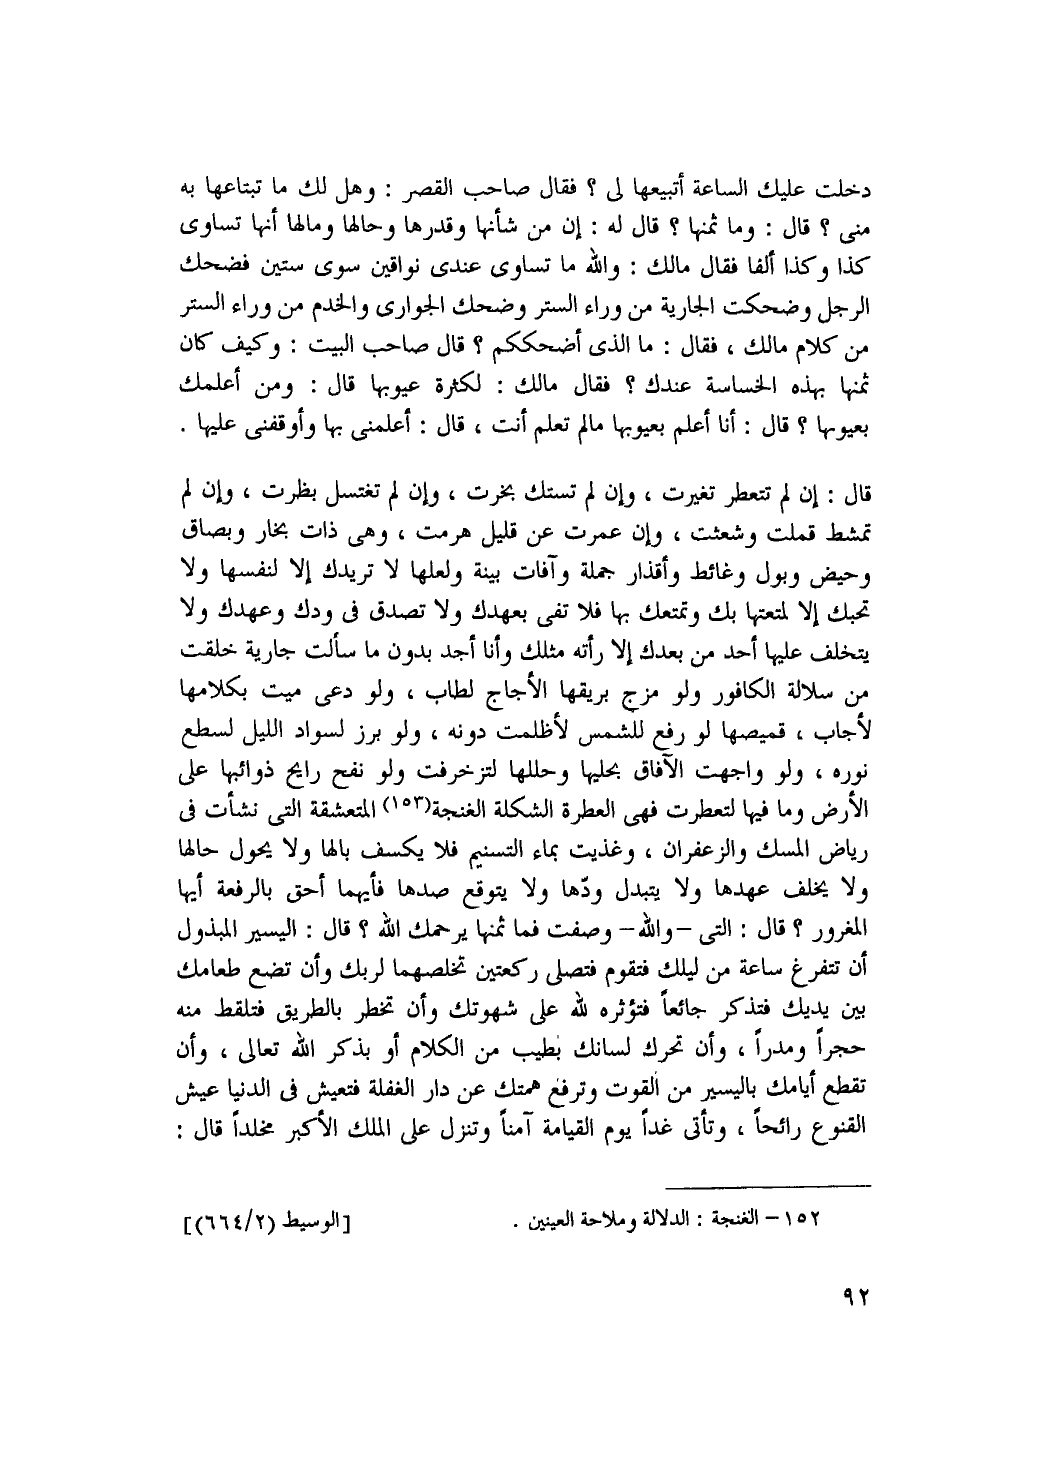 دخلت عليك الساعة أتبيعها لى ؟ فقال صاحب القصر : وهل لك ما تبتاعها به
منى ؟ قال : وما ثمنها ؟ قال له : إن من شأنها وقدرها وحالها ومالها أنها تساوى
كذا وكذا ألفا فقال مالك : والله ما تساوى عندى نواقين سوى ستين فضحك
الرجل وضحكت الجارية من وراء الستر وضحك الجوارى والخدم من وراء الستر
من كلام مالك ، فقال : ما الذى أضحككم ؟ قال صاحب البيت : وكيف كان
ثمنها بهذه الخساسة عندك ؟ فقال مالك : لكثرة عيوبها قال : ومن أعلمك
بعيوبها ؟ قال : أنا أعلم بعيوبها مالم تعلم أنت ، قال : أعلمنى بها وأوقفنى عليها .
قال : إن لم تتعطر تغيرت ، وإن لم تستك بخرت ، وإن لم تغتسل بظرت ، وإن لم
تمشط قملت وشعثت ، وإن عمرت عن قليل هرمت ، وهى ذات بخار وبصاق
وحيض وبول وغائط وأقذار جملة وآفات بينة ولعلها لا تريدك إلا لنفسها ولا
تحبك إلا لمتعتها بك وتمتعك بها فلا تفى بعهدك ولا تصدق فى ودك وعهدك ولا
يتخلف عليها أحد من بعدك إلا رأته مثلك وأنا أجد بدون ما سألت جارية خلقت
من سلالة الكافور ولو مزج بريقها الأجاج لطاب ، ولو دعى ميت بكلامها
لأجاب ، قميصها لو رفع للشمس لأظلمت دونه ، ولو برز لسواد الليل لسطع
نوره ، ولو واجهت الآفاق بحليها وحللها لتزخرفت ولو نفح رايح ذوائبها على
الأرض وما فيها لتعطرت فهى العطرة الشكلة الغنجة(١٥٣) المتعشقة التى نشأت فى
رياض المسك والزعفران ، وغذيت بماء التسنيم فلا يكسف بالها ولا يحول حالها
ولا يخلف عهدها ولا يتبدل ودّها ولا يتوقع صدها فأيهما أحق بالرفعة أيها
المغرور ؟ قال : التى –والله– وصفت فما ثمنها يرحمك الله ؟ قال : اليسير المبذول
أن تتفرغ ساعة من ليلك فتقوم فتصلى ركعتين تخلصهما لربك وأن تضع طعامك
بين يديك فتذكر جائعاً فتؤثره لله على شهوتك وأن تخطر بالطريق فتلقط منه
حجراً ومدراً ، وأن تحرك لسانك بطيب من الكلام أو بذكر الله تعالى ، وأن
تقطع أيامك باليسير من القوت وترفع همتك عن دار الغفلة فتعيش فى الدنيا عيش
القنوع رائحاً ، وتأتى غداً يوم القيامة آمناً وتنزل على الملك الأكبر مخلداً قال :
١٥٢– الغنجة : الدلالة وملاحة العينين . [الوسيط (٦٦٤/٢)]
٩٢